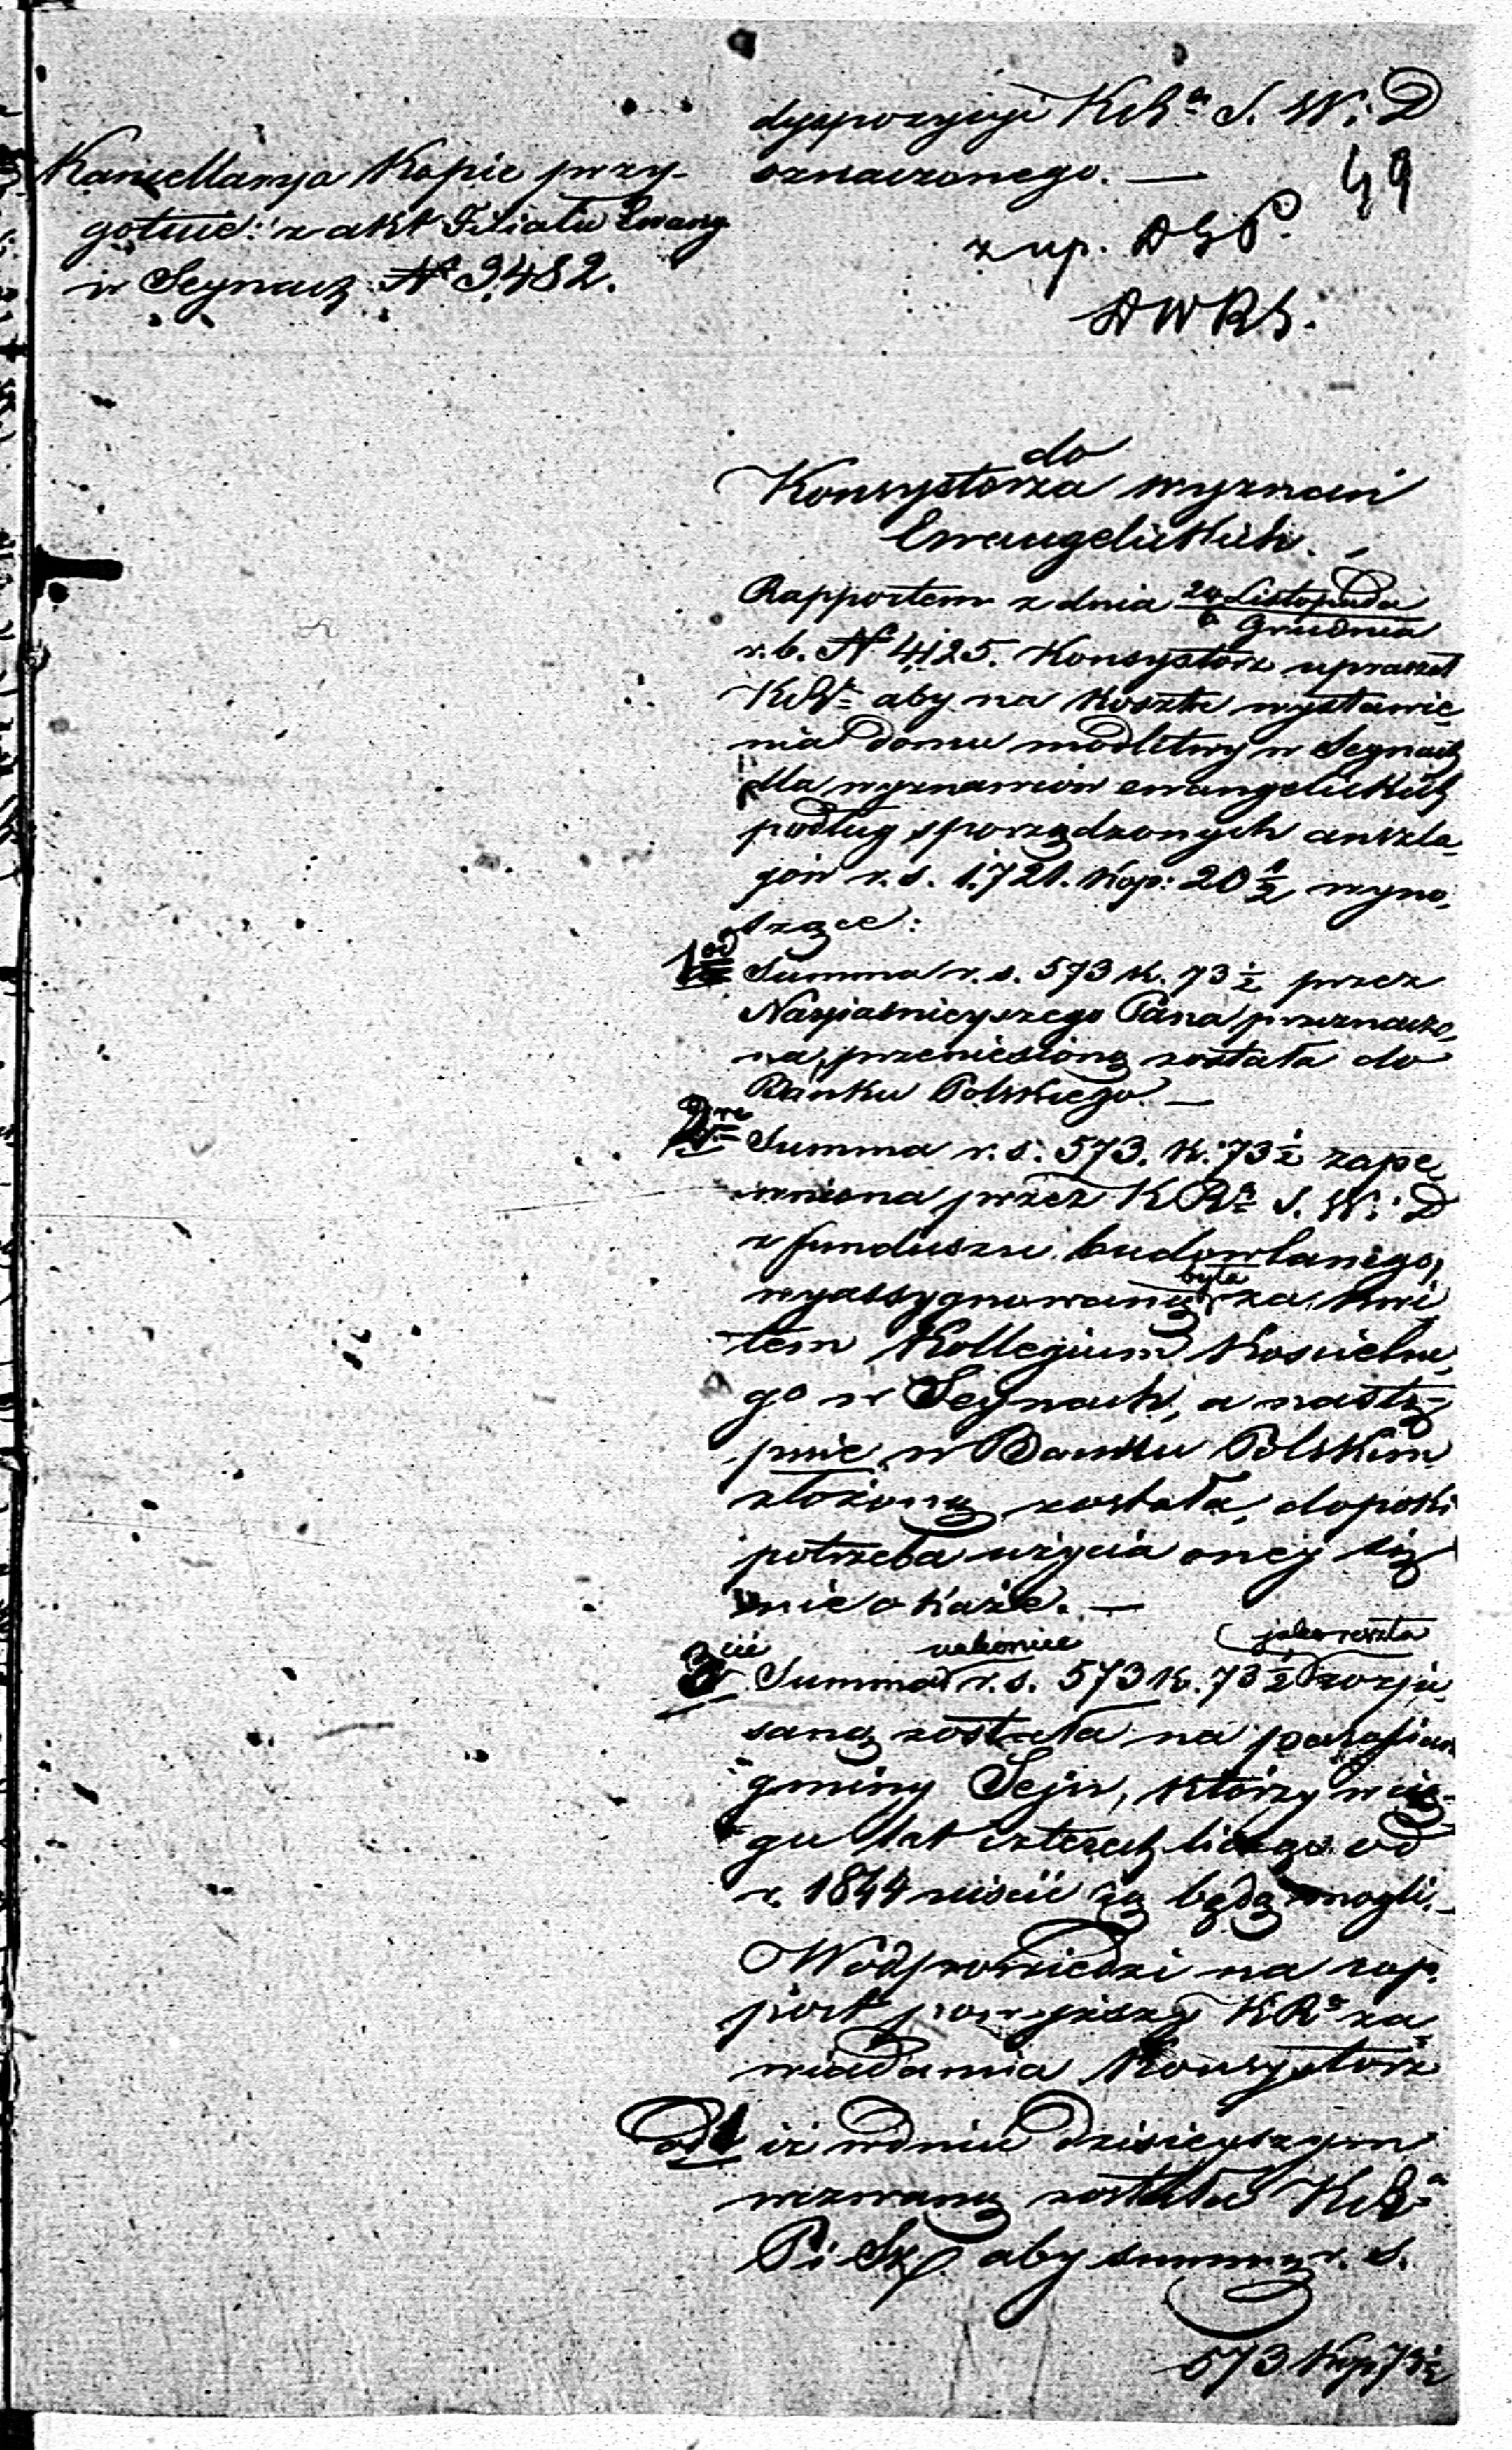 dyspozycyi KRą S. W. i D
oznaczonego. —
49
z up. D G P.
D W R S.
Kancellarya Kopie przy-
gotuie: z akt Filiału Ewang
w Seynach № 9,482.
do
Konsystorza wyznań
Ewangelickich.
Rapportem z dnia 24 Listopada
6 Grudnia
r. b. № 4,125. Konsystorz upraszał
KRą aby na koszta wystawie-
nia domu modlitwy w Seynach
dla wyznawców ewangelickich
podług sporządzonych anszla-
gów r. s. 1,721. kop: 20 1/2 wyno-
szące:
1od Summa r. s. 573 k. 73 1/2 przez
Nayjaśnieyszego Pana przeznaczo-
na, przeniesioną została do
Banku Polskiego. —
2re Summa r. s. 573. k. 73 1/2 zape-
wniona przez KRą S. W. i D
z funduszu budowlanego,
wyassygnowaną była za kwi-
tem Kollegium Kościelne-
go w Seynach, a nastę-
pnie w Banku Polskim
złożoną została, dopóki
potrzeba użycia oney się
nie okaże. —
3cie Summa nakoniec r. s. 573 k. 73 1/2 (jako reszta) rozpi-
saną została na parafian
gminy Sejn, którzy w cią-
gu lat czterech licząc od
r. 1844 uiścić ią będą mogli. —
W odpowiedzi na rap-
port powyższy KRą za-
wiadamia Konsystorz
ad 1 iż w dniu dzisieyszym
wezwaną została KRą
P. i Sk. aby summę r. s.
573 kop 73 1/2